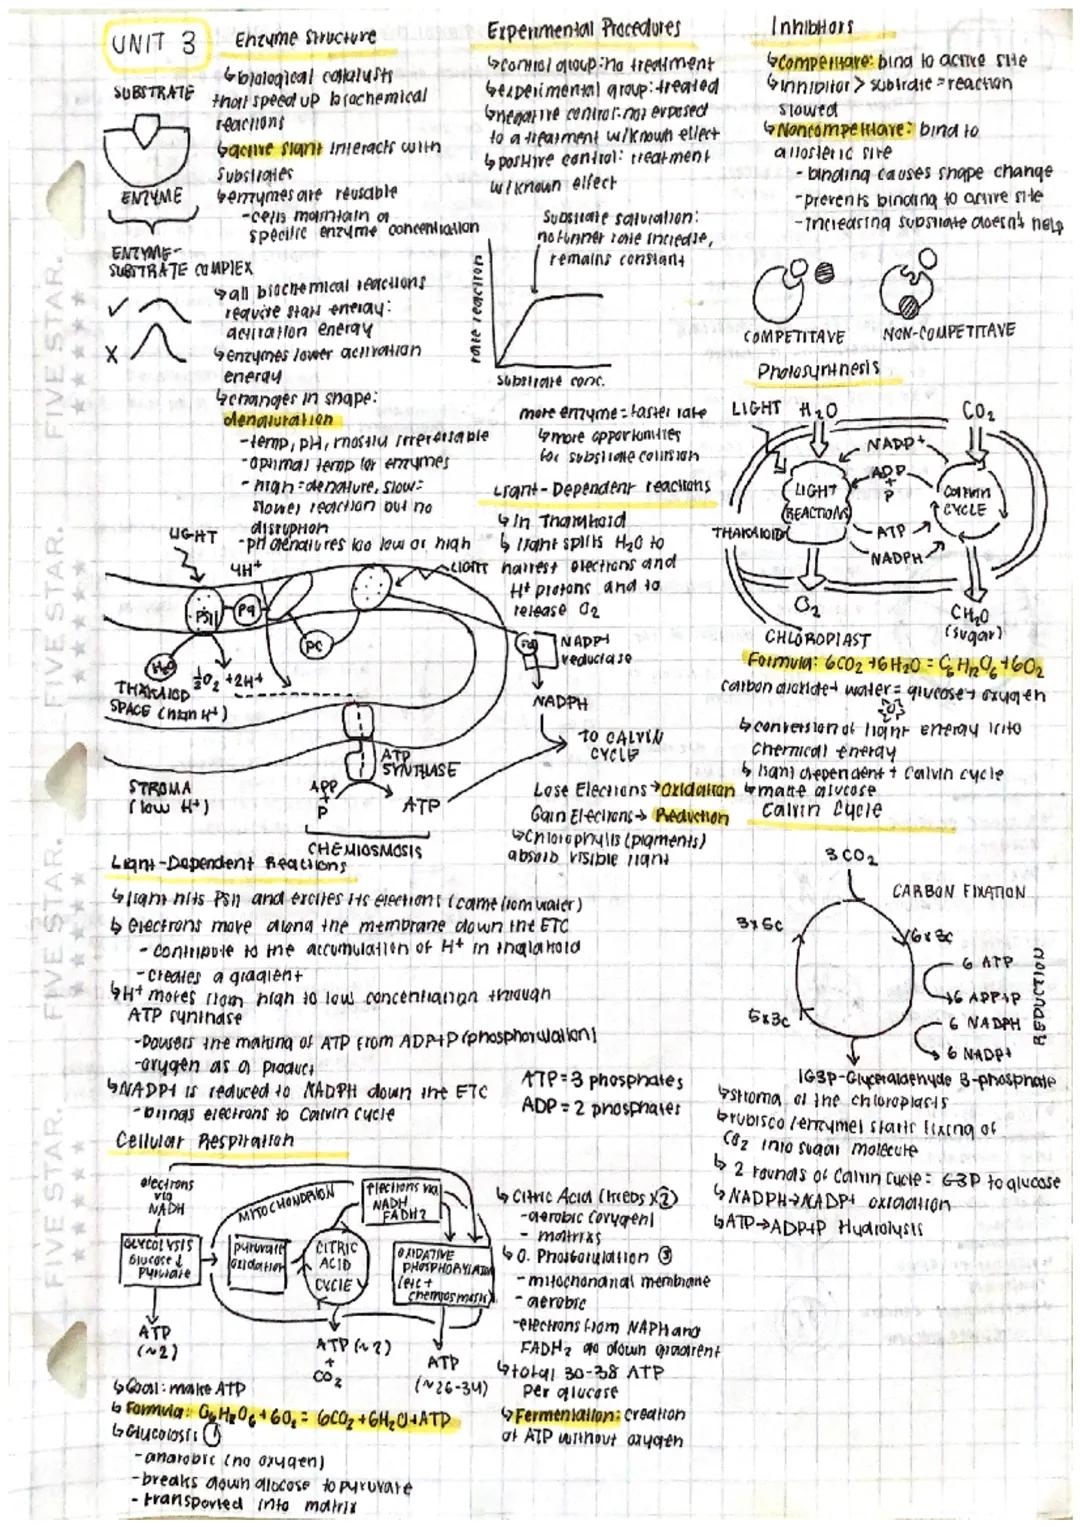 UNIT 3
Enzyme Structure
SUBSTRATE
ENZYME
ENZYME-
SUBSTRATE COMPLEX
↳biological catalysts
that speed up biochemical
reactions
↳active slant interacts with
substrates
↳enzymes are reusable
-cells maintain a
specific enzyme concentration
↳all biochemical reactions
require start energy:
activation energy
↳enzymes lower activation
energy
↳changes in shape:
denaturation
-temp, pH, mostly irreversable
-optimal temp for enzymes
-high=denature, slow=
slower reaction but no
disruption
-pH denatures too low or high
Experimental Procedures
↳control group: no treatment
↳experimental group: treated
↳negative control: not exposed
to a treatment w/known effect
↳positive control: treatment
w/known effect
Substrate saturation:
no further rate increase,
remains constant
rate reaction
Substrate conc.
more enzyme=faster rate
↳more opportunities
for substrate collision
Inhibitors
↳Competitave: bind to active site
↳inhibitor > substrate = reaction
slowed
↳Noncompetitave: bind to
allosteric site
-binding causes shape change
-prevents binding to active site
-increasing substrate doesn't help
COMPETITAVE
NON-COMPETITAVE
Photosynthesis
LIGHT H₂O CO₂
NADP+
ADP
+
P
LIGHT
REACTIONS
CALVIN
CYCLE
ATP
NADPH
THAKALOID
O₂
CH₂O
(sugar)
CHLOROPLAST
Formula: 6CO2 +6H2O = C6H12O6 +6O2
carbon dioxide + water = glucose + oxygen
↳conversion of light energy into
chemical energy
↳light dependent + Calvin cycle
↳make glucose
Light-Dependent reactions
↳In Thakaloid
↳light splits H₂O to
harvest electrons and
H+ protons and to
release O2
LIGHT
4H+
LIGHT
PSII
Pq
PC
Fd
H₂O
½O₂ +2H+
THAKALOID
SPACE (high H+)
NADP+
reductase
NADPH
TO CALVIN
CYCLE
ATP
SYNTHASE
STROMA
(low H+)
ADP
+
P
ATP
CHEMIOSMOSIS
Lose Electrons → Oxidation
Gain Electrons → Reduction
↳Chlorophylls (pigments)
absorb visible light
Light-Dependent Reactions
↳light hits PSII and excites its electrons (came from water)
↳electrons move along the membrane down the ETC
-contribute to the accumulation of H+ in thylakoid
-creates a gradient
↳H+ moves from high to low concentration through
ATP synthase
-powers the making of ATP from ADP+P (phosphorylation)
-oxygen as a product
↳NADP+ is reduced to NADPH down the ETC
-brings electrons to Calvin cycle
ATP=3 phosphates
ADP=2 phosphates
Calvin Cycle
3 CO₂
CARBON FIXATION
3x5c
6x3c
6 ATP
6 ADP+P
6 NADPH
6 NADP+
REDUCTION
5x3c
1G3P-Glyceraldehyde 3-phosphate
↳stroma of the chloroplasts
↳rubisco (enzyme) starts fixing of
CO2 into sugar molecule
↳2 rounds of Calvin cycle = G3P to glucose
↳NADPH→NADP+ oxidation
↳ATP→ADP+P Hydrolysis
Cellular Respiration
electrons
via
NADH
MITOCHONDRION
electrons via
NADH
FADH2
GLYCOLYSIS
Glucose ↓
Pyruvate
pyruvate
oxidation
CITRIC
ACID
CYCLE
OXIDATIVE
PHOSPHORYLATION
(etc +
chemiosmosis)
ATP
(~2)
ATP (~2)
+
CO₂
ATP
(~26-34)
↳Goal: make ATP
↳Formula: C6H12O6 + 6O2 = 6CO2 + 6H2O + ATP
↳Glycolosis ①
-anarobic (no oxygen)
-breaks down glocose to pyruvate
-transported into matrix
↳Citric Acid (Krebs) x②
-aerobic (oxygen)
-matrixs
↳O. Phosforylation ③
-mitochondrial membrane
-aerobic
-electrons from NAPH and
FADH2 go down gradient
↳total 30-38 ATP
per glucose
↳Fermentation: creation
of ATP without oxygen
FIVE STAR.
FIVE STAR.
FIVE STAR.
FIVE STAR.